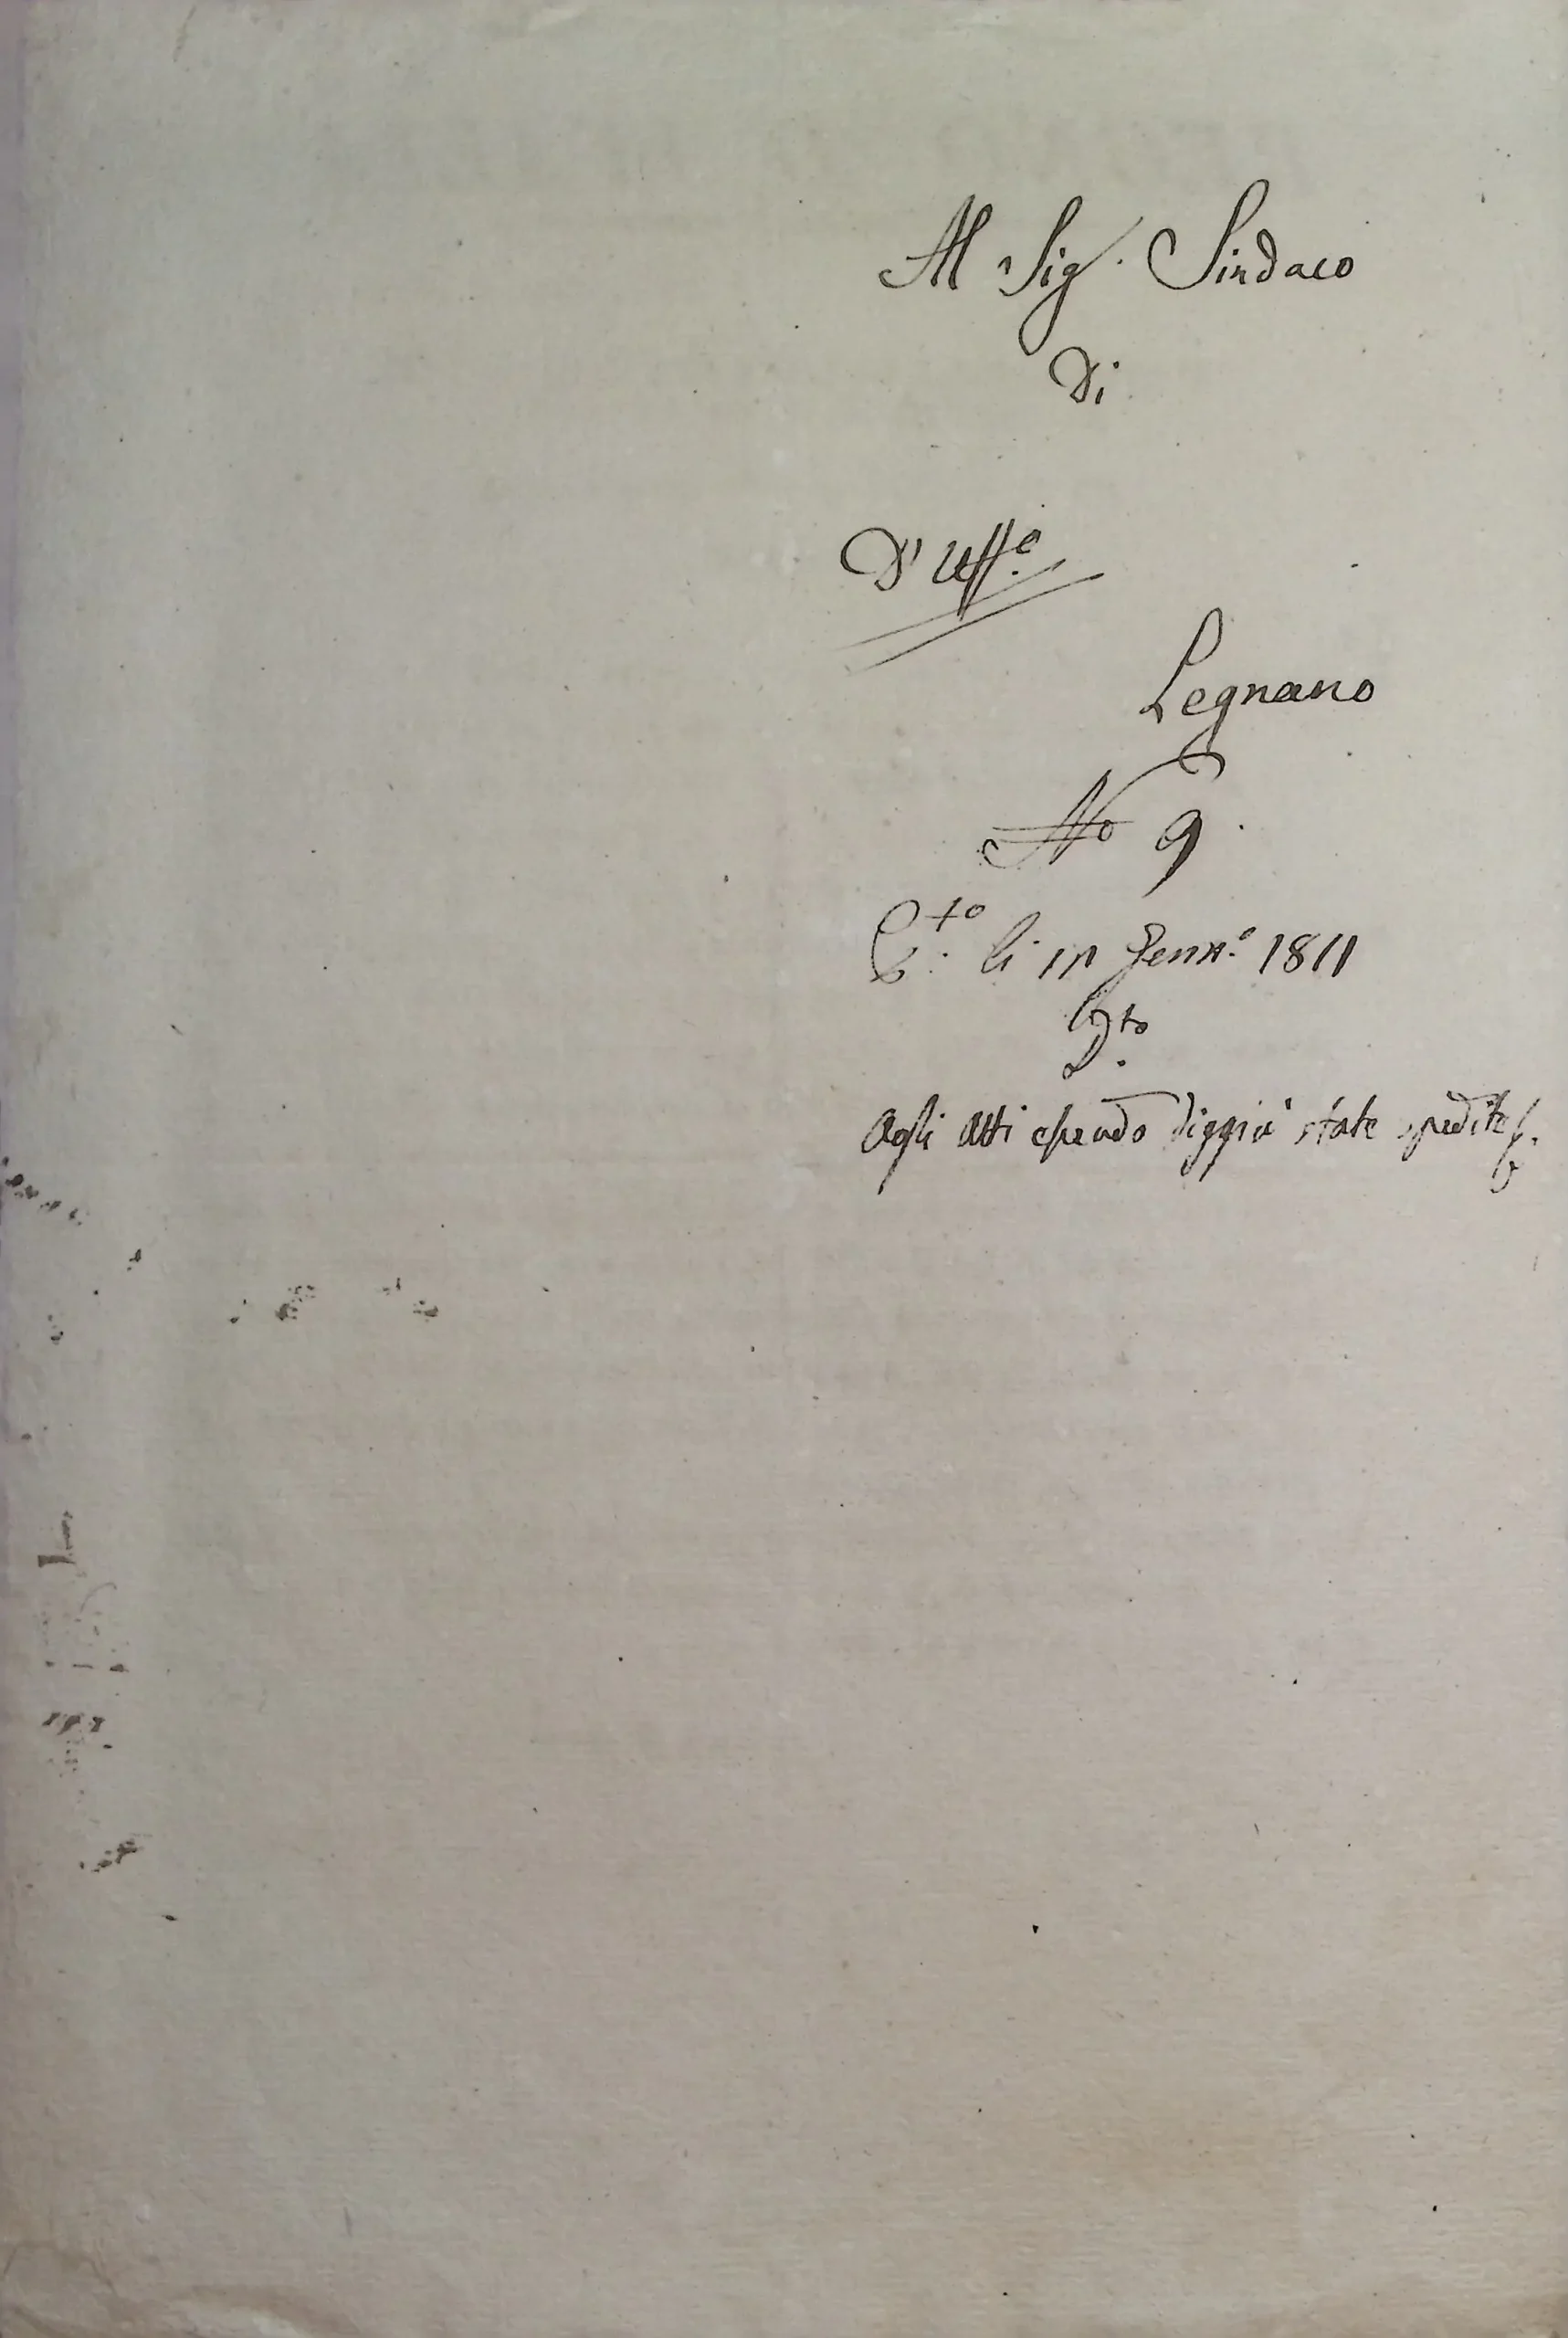 Al Sig.r Sindaco
Di
D'Uff.o
Legnano
No 9.
li 11 Genn.o 1811
Agli Atti essendo diggià state spedite